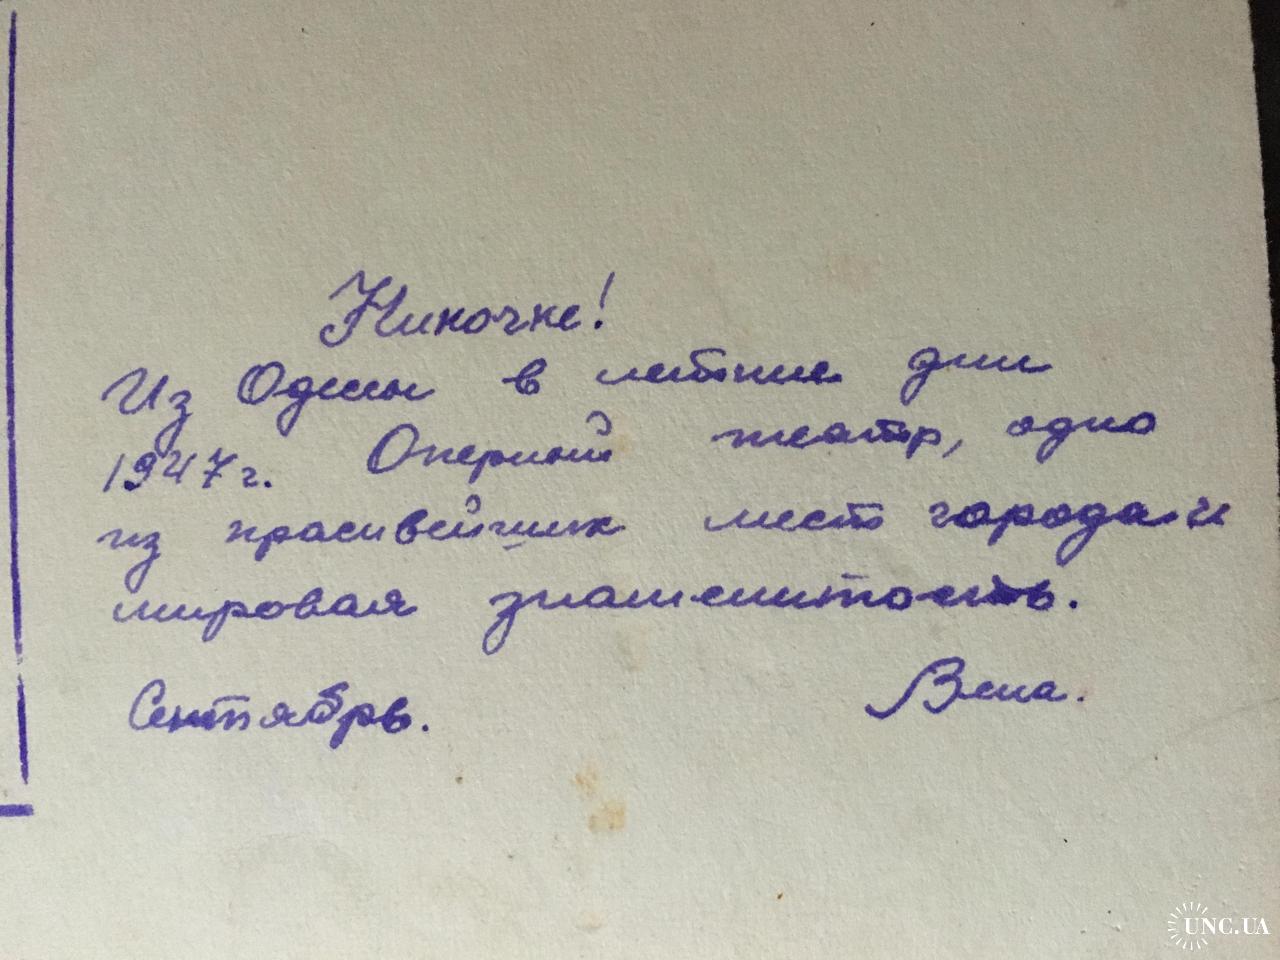 Ниночке!
Из Одессы в летние дни
1947 г. Оперный театр, одно
из красивейших мест города и
мировая знаменитость.
Сентябрь.
UNC.UA